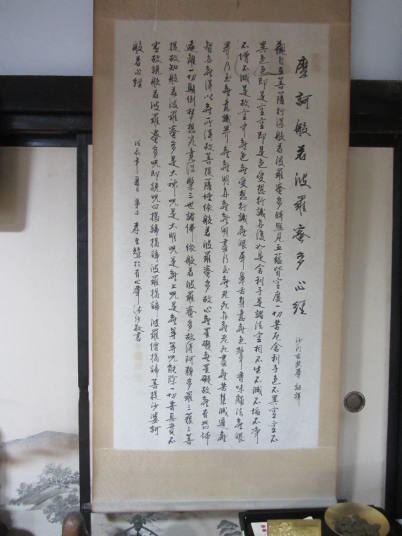 摩訶般若波羅蜜多心經
沙門玄奘奉 詔譯
觀自在菩薩行深般若波羅蜜多時照見五蘊皆空度一切苦厄舍利子色不異空空不
異色色即是空空即是色受想行識亦復如是舍利子是諸法空相不生不滅不垢不淨
不增不減是故空中無色無受想行識無眼耳鼻舌身意無色聲香味觸法無眼
界乃至無意識界無無明亦無無明盡乃至無老死亦無老死盡無苦集滅道無
智亦無得以無所得故菩提薩埵依般若波羅蜜多故心無罣礙無罣礙故無有恐怖
遠離一切顛倒夢想究竟涅槃三世諸佛依般若波羅蜜多故得阿耨多羅三藐三菩
提故知般若波羅蜜多是大神咒是大明咒是無上咒是無等等咒能除一切苦真實不
虛故說般若波羅蜜多咒即說咒曰揭諦揭諦波羅揭諦波羅僧揭諦菩提沙婆訶
般若心經